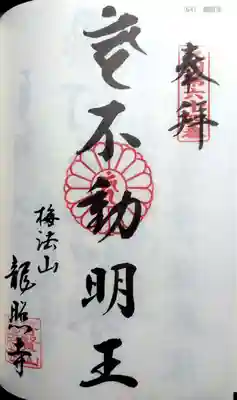 奉拝
不動明王
梅法山
龍照寺